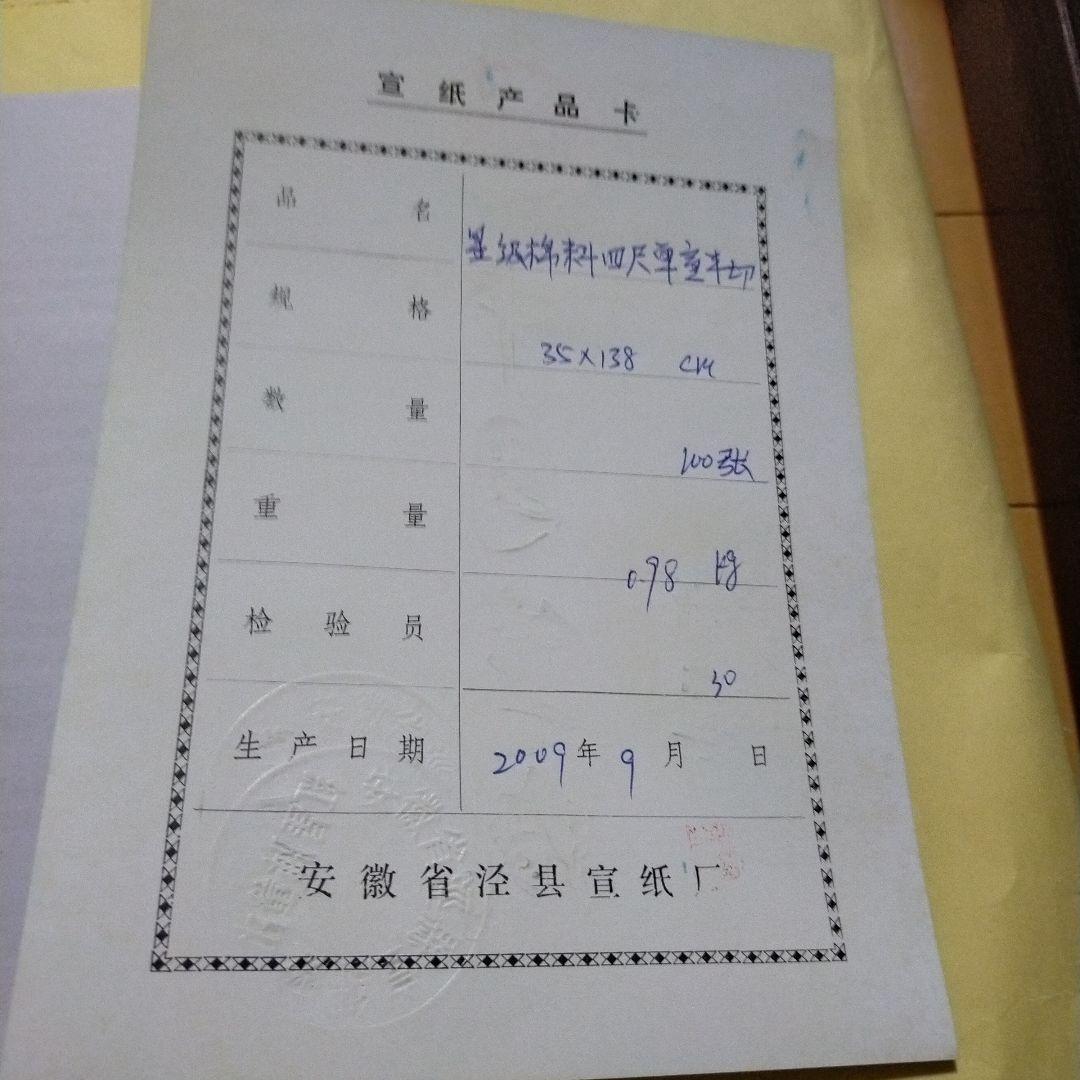 宣纸产品卡
品名 星级棉料四尺单宣半切
规格 35×138 cm
数量 100张
重量 0.98 kg
检验员 30
生产日期 2009年9月 日
安徽省泾县宣纸厂